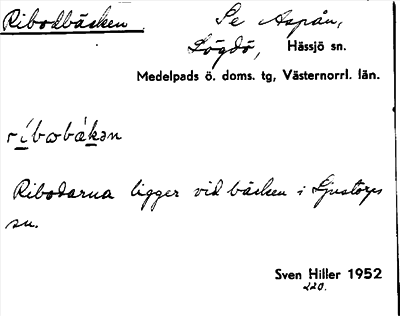 Ribodbäcken. Se Aspån,
Lögdö, Hässjö sn.
Medelpads ö. doms. tg, Västernorrl. län.
ríbωbä́kən
Ribodarna ligger vid bäcken i Ljustorps
sn.
Sven Hiller 1952
220.